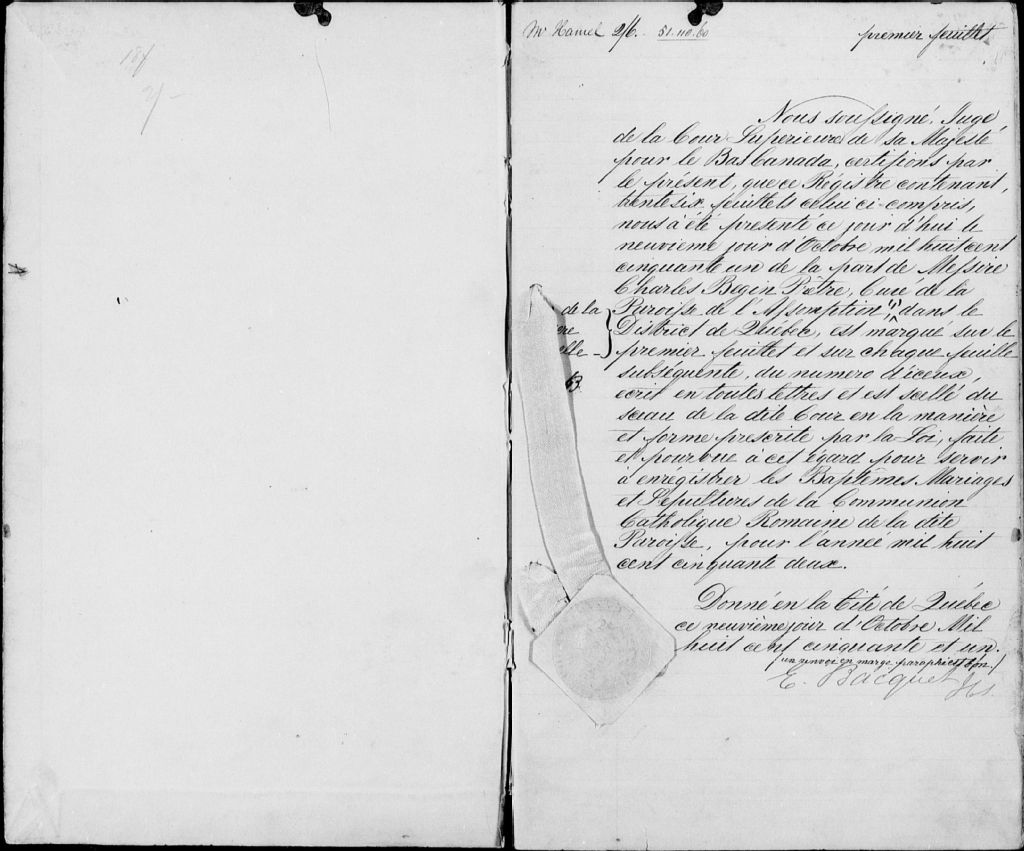 187
2/-
Mr Hamel 2/6. 51.110.60 premier feuillet
Nous soussigné, Juge
de la Cour Superieure de sa Majesté
pour le Bas Canada, certifions par
le présent, que ce Régistre contenant,
trente six feuillets celui ci compris,
nous a été présenté ce jour d'hui le
neuvieme jour d'Octobre mil huit cent
cinquante un de la part de Messire
Charles Begin Prêtre, Curé de la
Paroisse de l'Assomption, dans le
District de Québec, est marqué sur le
premier feuillet et sur chaque feuille
subséquente, du numero d'iceux,
ecrit en toutes lettres et est scellé du
sceau de la dite Cour en la manière
et forme prescrite par la Loi, faite
et pourvue à cet égard pour servir
à enrégistrer les Baptêmes Mariages
et Sépultures de la Communion
Catholique Romaine de la dite
Paroisse, pour l'année mil huit
cent cinquante deux.
de la
elle
B
Donné en la Cité de Québec
ce neuvième jour d'Octobre Mil
huit cent cinquante et un.
(un renvoi en marge paraphé est bon.)
E. Bacquet